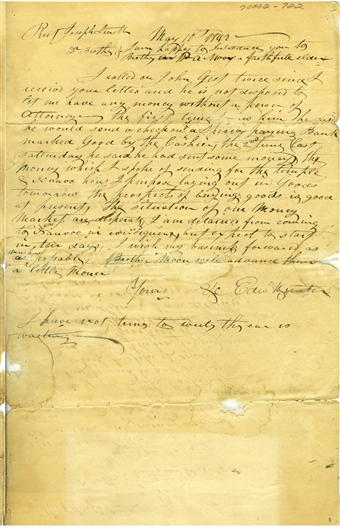 70002-722
May 10th 1842
Rev Joseph Smith
Dr Brother I am happy to introduce you to
a faithfull elder
I called on John Gest twice since I
receivd your letter and he is not disposed to
let me have any money without a power of
Attorney the first time I him he said
he would send a check on a Specie paying Bank
marked Good by the Cashier, the 2nd time last
satturday he said he had sent some money the
money which I spoke of sending for the temple
& Nauvoo house I purpose laying out in Goods
tomorrow the prospect of Goods is good
at present, the situation of our Money
Market I am detained from coming
to Nauvoo in consequence, but expect to start
in few days, I wish my business forwarded as
as possible, Brother Moon will advance them
a little Money
Yours &c Edwd Hunter
I have not time to write the car is
waiting